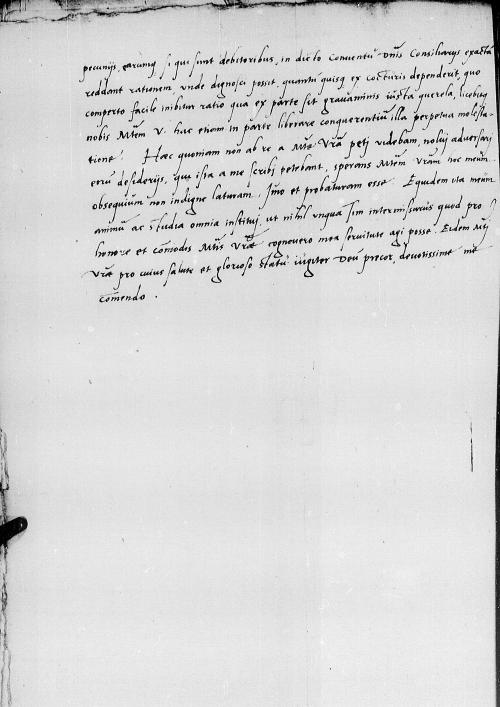 pecunijs, earumq si qui sunt debitoribus, in dicto Conventu Dnis Consiliarijs exactã
reddant rationem unde dignosci possit, quantũ quisq ex cocturis dependerit, quo
comperto facile inibitur ratio qua ex parte sit gravaminis iusta querela, licebitq
nobis Mtem V. hac etiam in parte liberare conquerentiũ illa perpetua molesta-
tione. Haec quoniam non ab re a Mte Vra peti videbam, nolui adversari
eorũ desiderijs, qui ista a me scribi petebant, sperans Mtem Vram hoc meum
obsequium non indigne laturam. Imo et probaturam esse. Equidem ita meum
animũ ac studia omnia institui, ut nihil unquã sim intermissurus quod pro
honore et comodis Mtis Vrae cognovero mea servitute agi posse. Eidem Mti
Vrae pro cuius salute et glorioso statu iugiter Deũ precor, devotissime me
comendo.